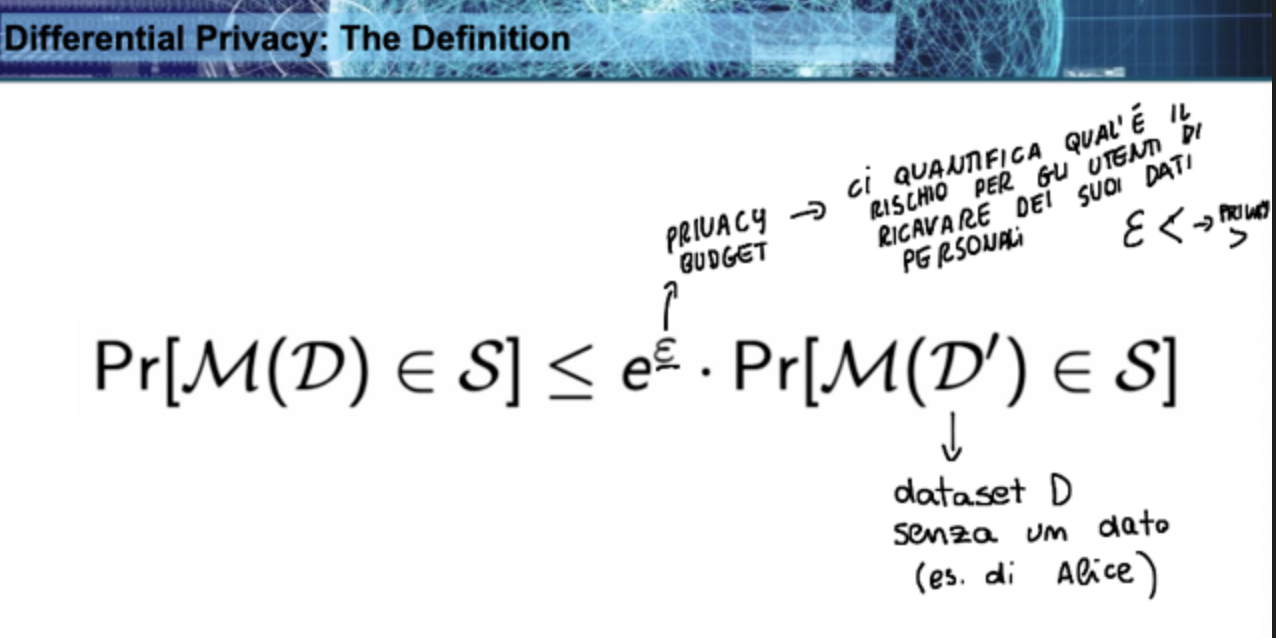 Differential Privacy: The Definition
PRIVACY
BUDGET
→ ci QUANTIFICA QUAL'É IL
RISCHIO PER GLI UTENTI DI
RICAVARE DEI SUOI DATI
PERSONALi
ε < → PRIVACY >
Pr[M(D) ∈ S] ≤ e^ε · Pr[M(D′) ∈ S]
dataset D
senza un dato
(es. di Alice)